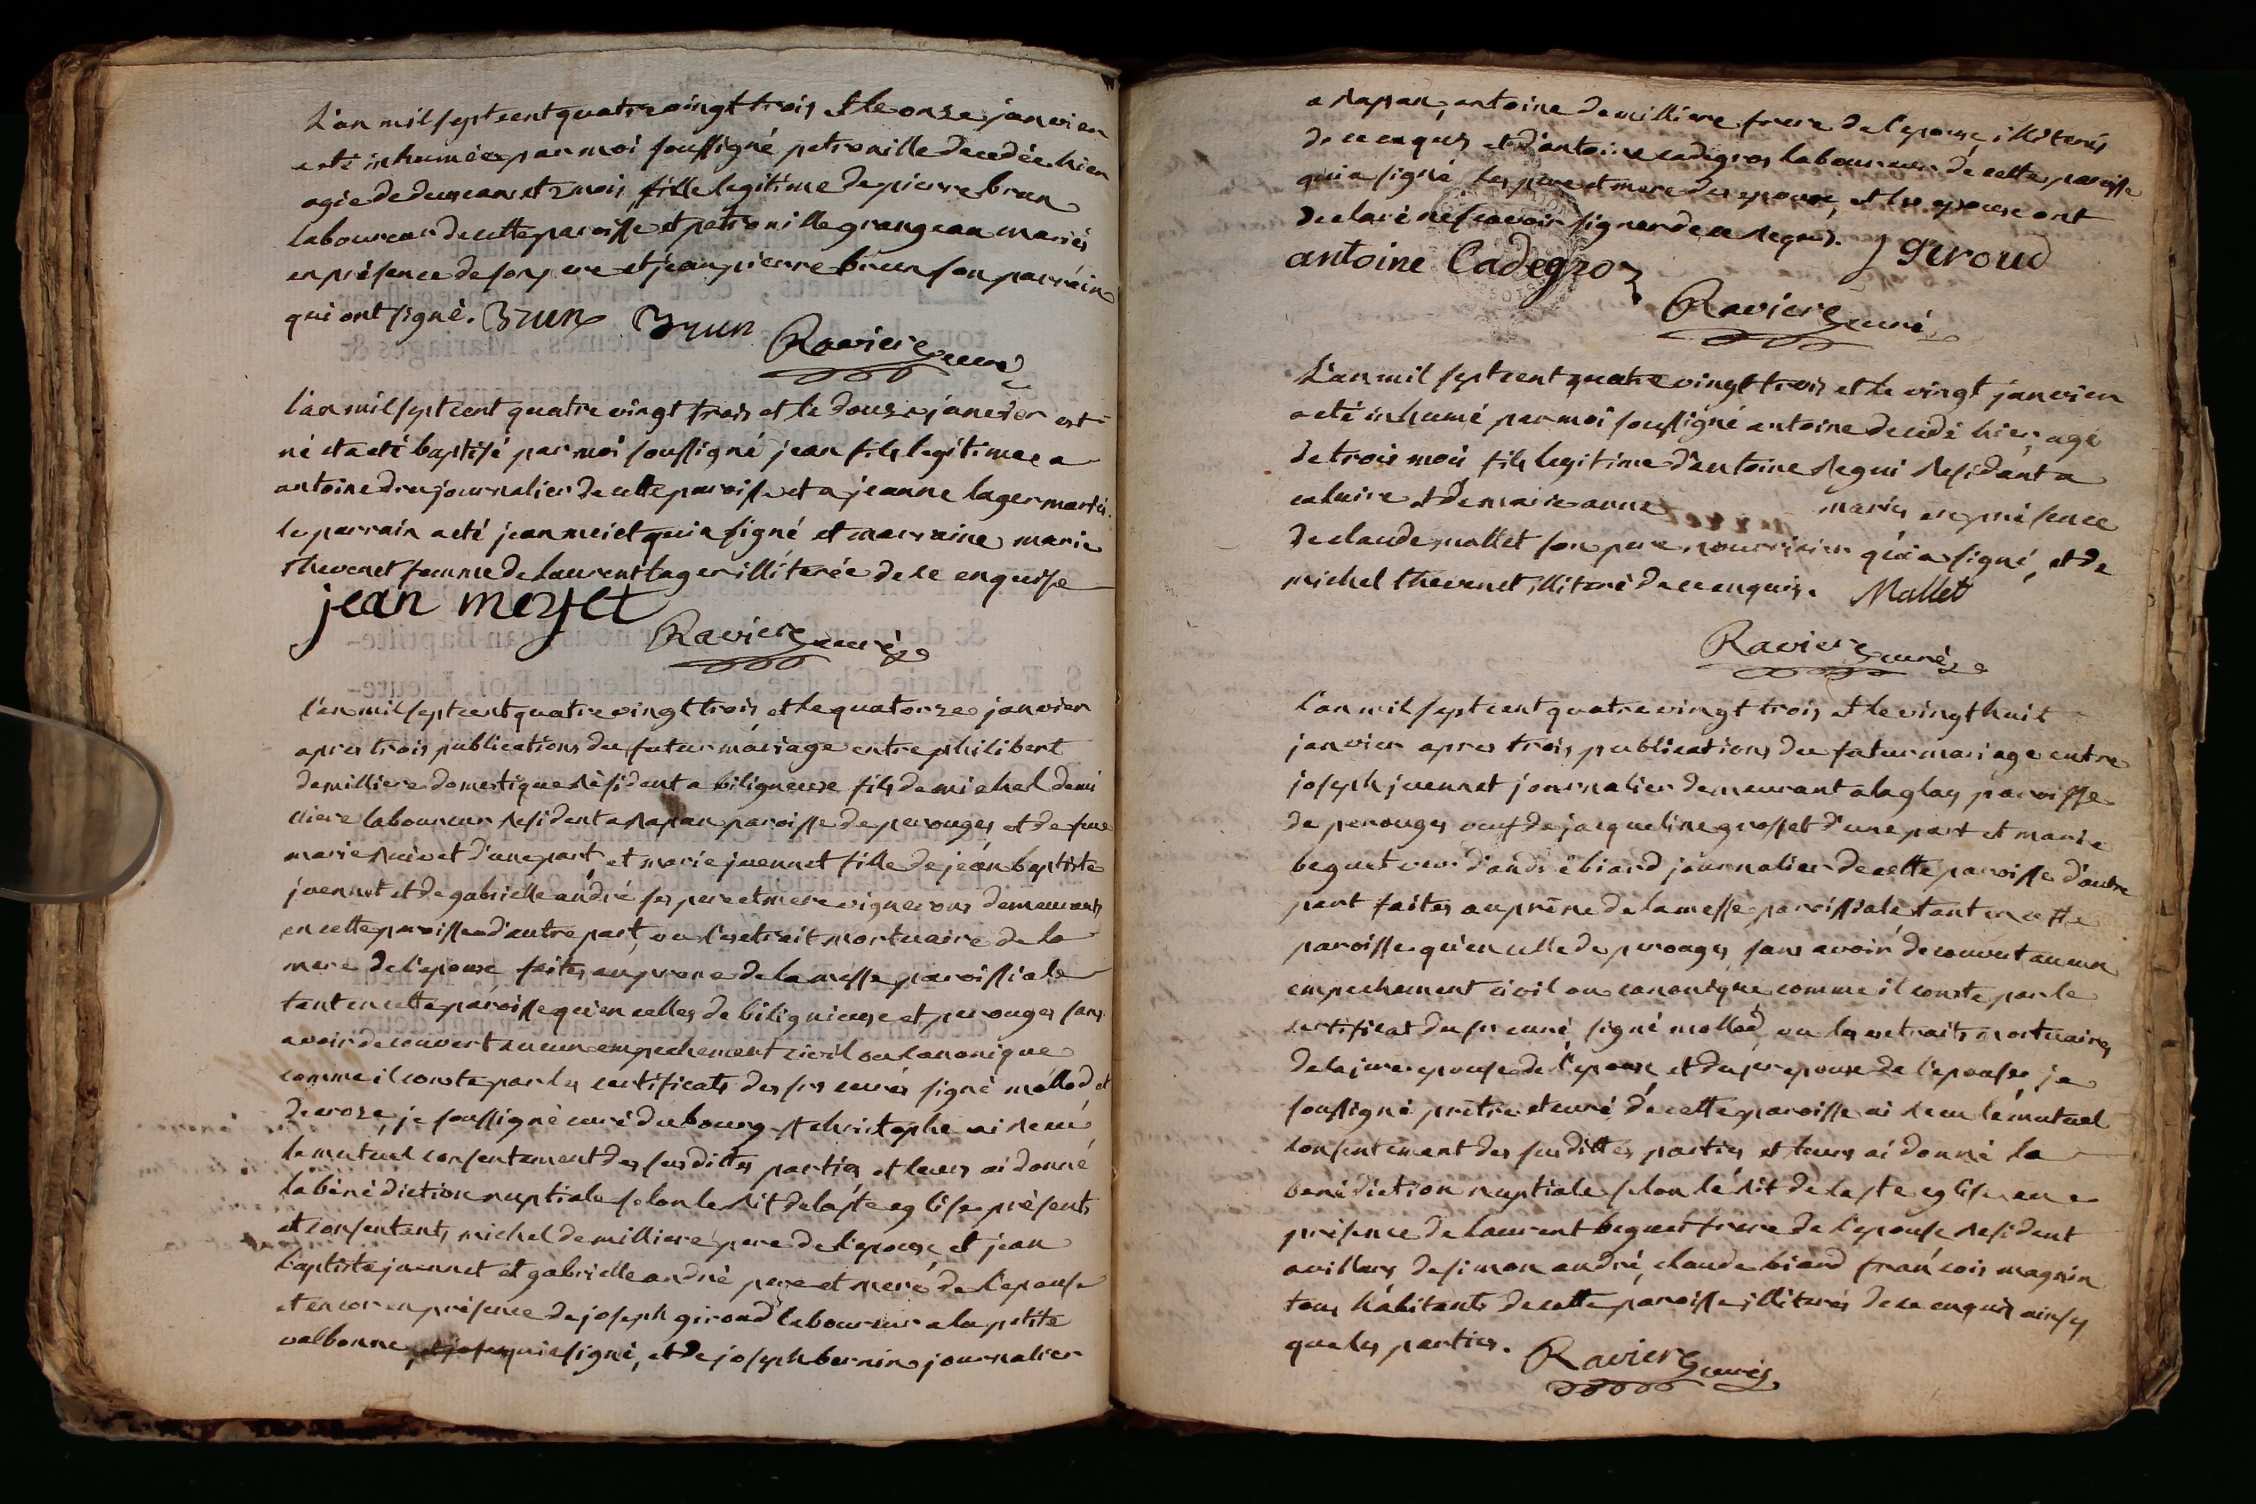 L'an mil sept cent quatre vingt trois et le onze janvier
a eté inhumée par moi soussigné petronille decedée hier
agée de deux ans et 2 mois fille legitime de pierre brun
laboureur de cette paroisse et petronille grangean mariés
en présence de son pere et jean pierre brun son parrein
qui ont signé. Brun Brun Raviere curé
l'an mil sept cent quatre vingt trois et le douze janvier est
né et a eté baptisé par moi soussigné jean fils legitime a
antoine dru journalier de cette paroisse et a jeanne lager mariés.
le parrain a eté jean meiet qui a signé et marraine marie
thevenet femme de laurent lager illiterée de ce enquise
jean meyet
Raviere curé
l'an mil sept cent quatre vingt trois et le quatorze janvier
apres trois publications du futur mariage entre philibert
demilliere domestique résident a biligneuse fils de michel demi
lliere laboureur resident a rapan paroisse de perouges et de feue
marie d'une part et marie juennet fille de jean baptiste
juennet et de gabrielle andré ses pere et mere vignerons demeurants
en cette paroisse d'autre part, vu l'extrait mortuaire de la
mere de l'epoux faites au prone de la messe paroissiale
tant en cette paroisse qu'en celles de biligneuse et perouges sans
avoir decouvert aucun empechement civil ou canonique
comme il conste par les certificats des srs curés signé mollod, et
decroze, je soussigné curé du bourg st christophe ai recu
le mutuel consentement des susdittes parties et leurs ai donné
la bénédiction nuptiale selon le rit de la ste eglise présents
et consentants michel demilliere pere de l'epoux, et jean
baptiste juennet et gabrielle andré pere et mere de l'epouse
et encor en présence de joseph giroud laboureur a la petite
valbonne, qui a signé, et de joseph bernin journalier
a rapan, antoine demilliere frere de l'epoux, illiterés
de ce enquis et d'antoine cadegros laboureur de cette paroisse
qui a signé les pere et mere des epoux, et les epoux ont
declaré ne scavoir signer de ce requis. J Giroud
antoine Cadegros
Raviere curé
L'an mil sept cent quatre vingt trois et le vingt janvier
a eté inhumé par moi soussigné antoine decedé hier agé
de trois mois fils legitime d'antoine regui residant a
caluire et de marie anne mariés en présence
de claude mallet son pere nourricier qui a signé, et de
michel thevenet illiteré de ce enquis. Mallet
Raviere curé
L'an mil sept cent quatre vingt trois et le vingt huit
janvier apres trois publications du futur mariage entre
joseph juennet journalier demeurant a la glay paroisse
de perouges veuf de jacqueline grosset d'une part et marie
beguet veuve d'andré biard journalier de cette paroisse d'autre
part faites au prône de la messe paroissiale tant en cette
paroisse qu'en celle de perouges, sans avoir decouvert aucun
empechement civil ou canonique comme il conste par le
certificat du sr curé signé mollod, vu les extraits mortuaires
de la jere epouse de l'epoux et du jer epoux de l'epouse, je
soussigné prêtre et curé de cette paroisse ai recu le mutuel
consentement des susdittes parties et leurs ai donné la
benédiction nuptiale selon le rit de la ste eglise en
présence de laurent beguet frere de l'epouse resident
a villars de simon andré, claude biard francois magnin
tous habitants de cette paroisse illiterés de ce enquis ainsy
que les parties. Raviere curé